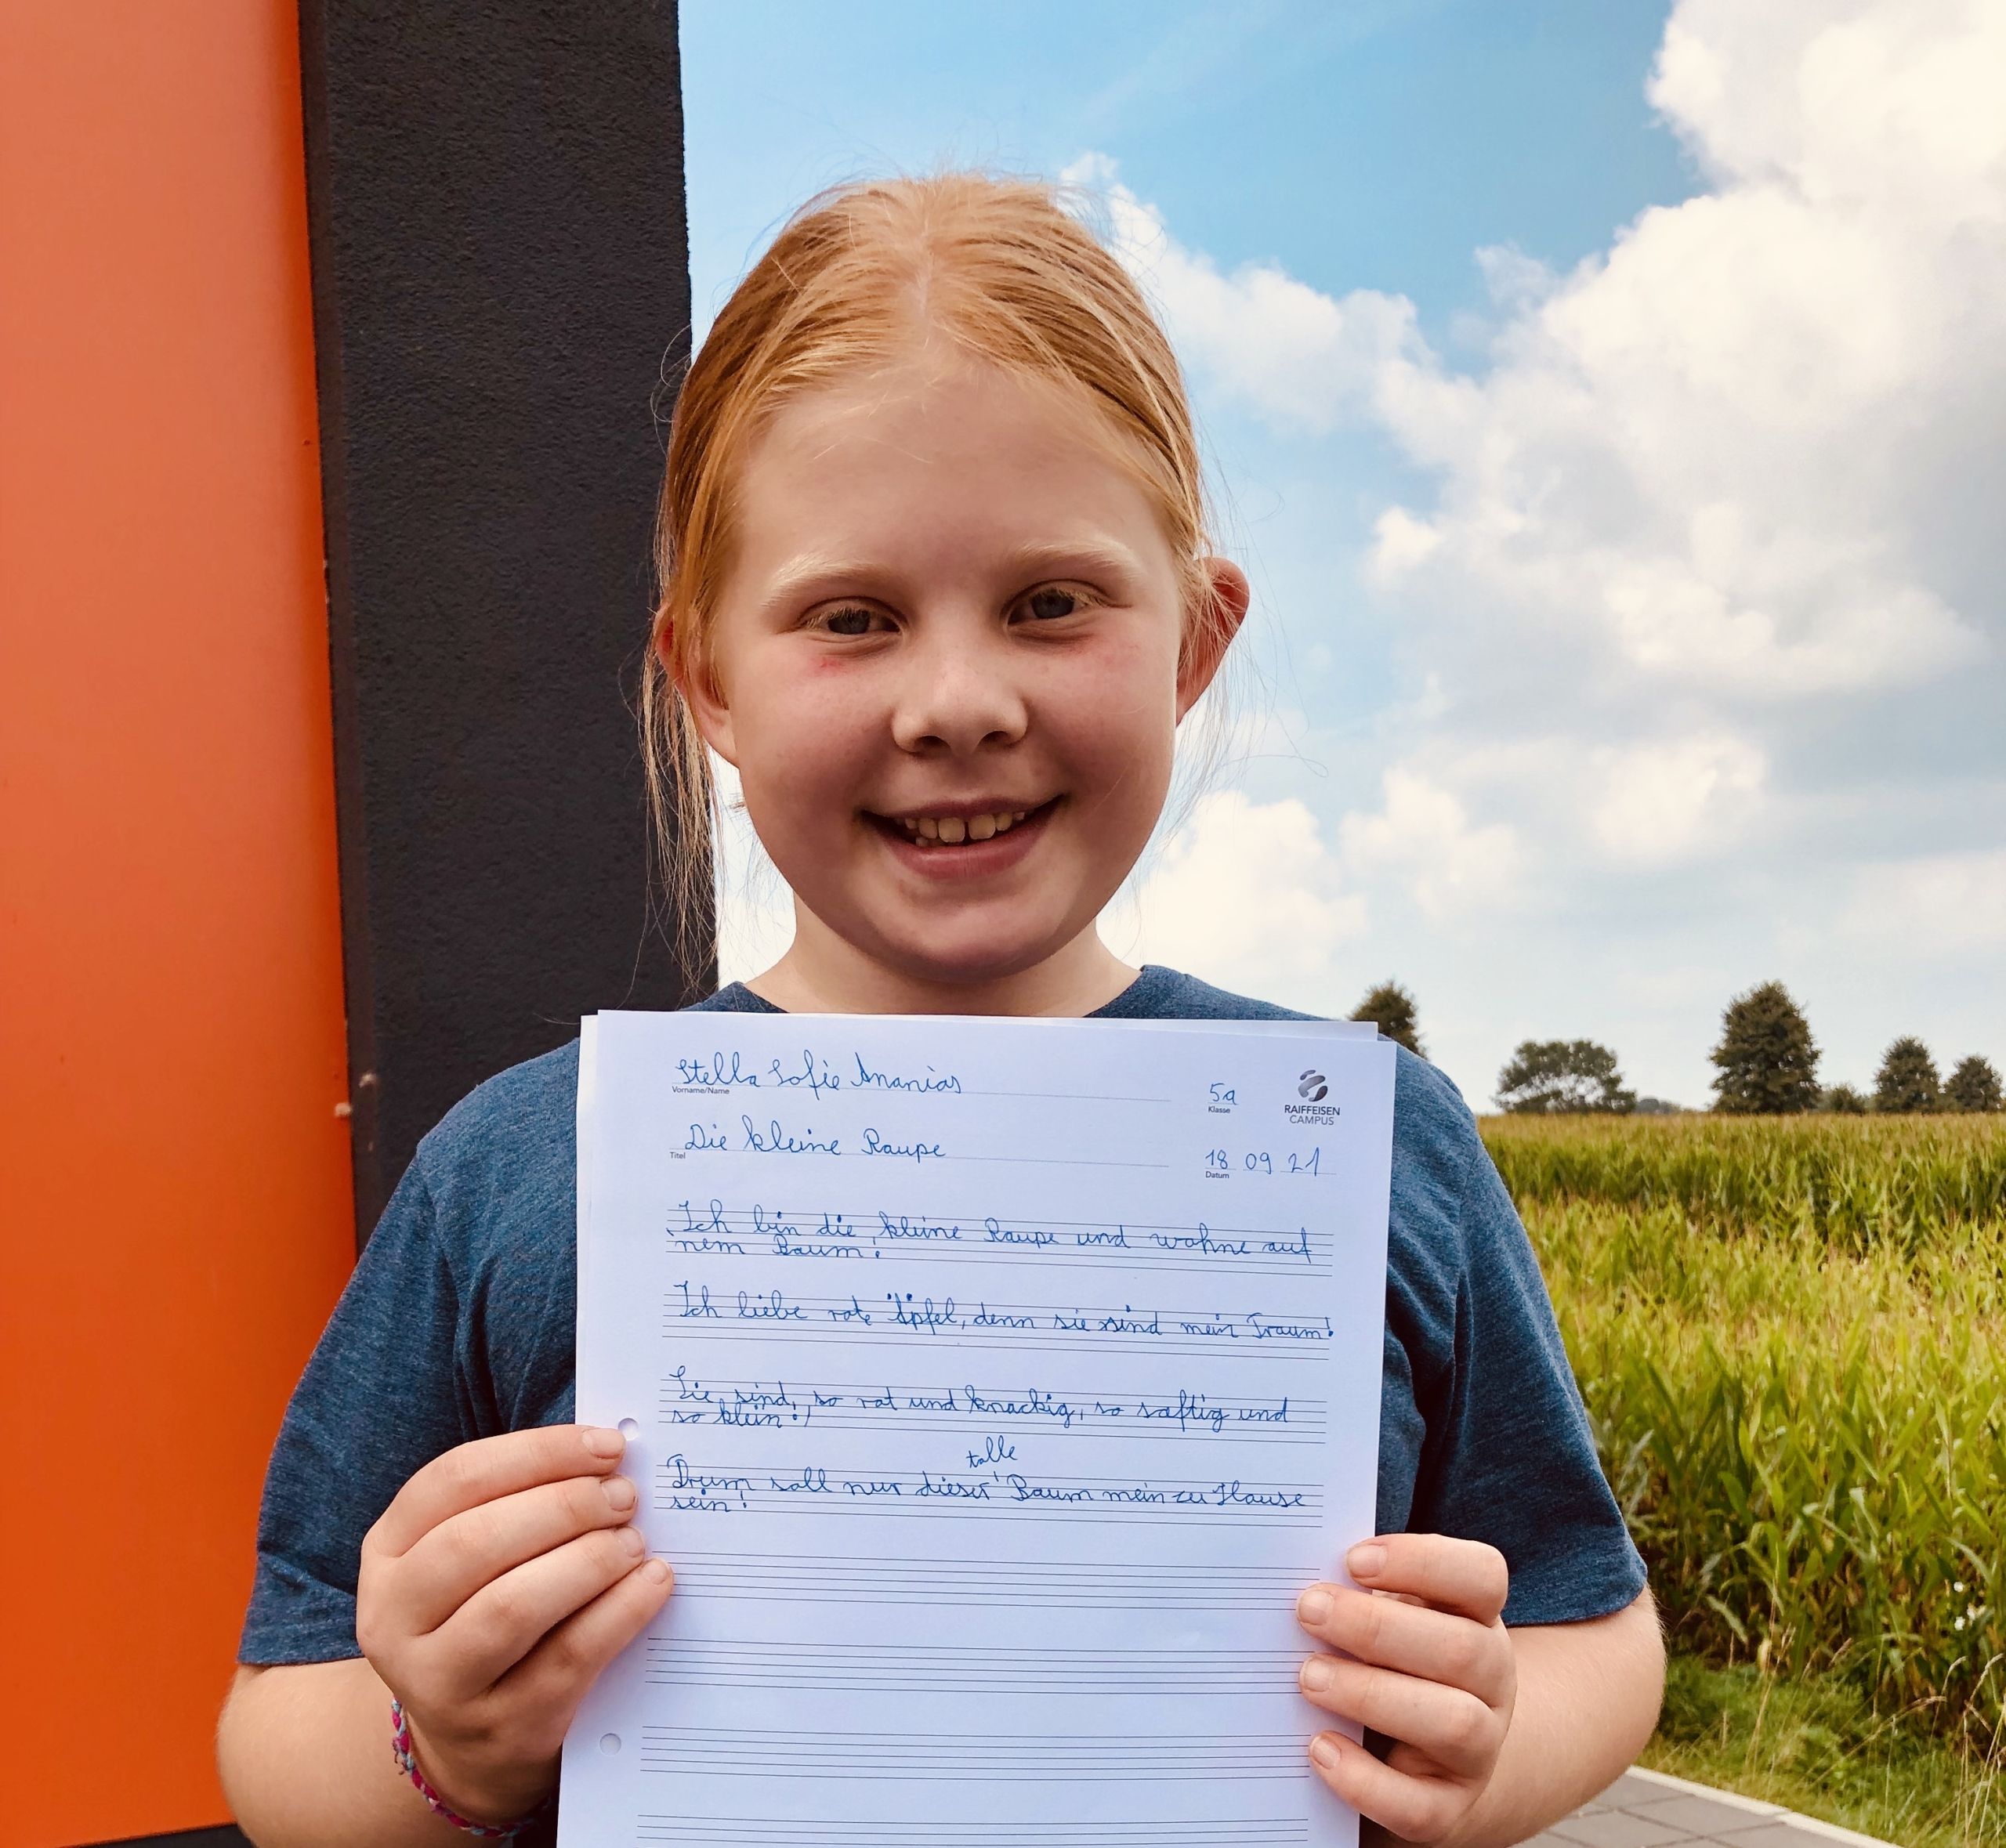 Stella Sofie Ananias
Vorname/Name
5a
Klasse
RAIFFEISEN
CAMPUS
Die kleine Raupe
Titel
18 09 21
Datum
Ich bin die kleine Raupe und wohne auf
'nem Baum!
Ich liebe rote Äpfel, denn sie sind mein Traum!
Sie sind, so rot und knackig, so saftig und
so klein!
tolle
Drum soll nur dieser Baum mein zu Hause
sein!